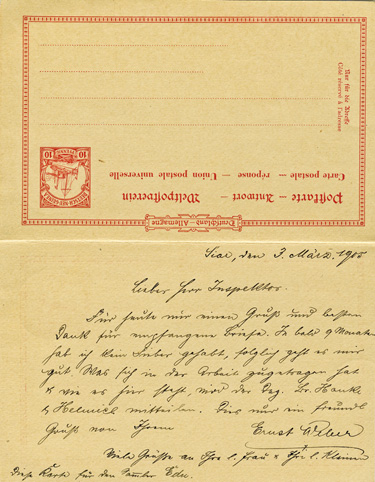 Nur für die Adresse
Côté réservé à l'adresse
Deutschland – Allemagne
Postkarte – Antwort – Weltpostverein
Carte postale – réponse – Union postale universelle
10 10
Siar, den 3. März 1905
Lieber Herr Inspektor.
Für heute nur einen Gruß und besten
Dank für empfangene Briefe. In bald 9 Monaten
hab ich kein Fieber gehabt, folglich geht es mir
gut. Was sich in der Arbeit zugetragen hat
& wie es hier steht, wird der Dr. Hanke
& Helmich mitteilen. Dies nur ein freundl.
Gruß von Ihrem
Ernst Weber
Viele Grüße an Ihre l. Frau & Ihre l. Kleinen
Diese Karte für den Sammler Edu.